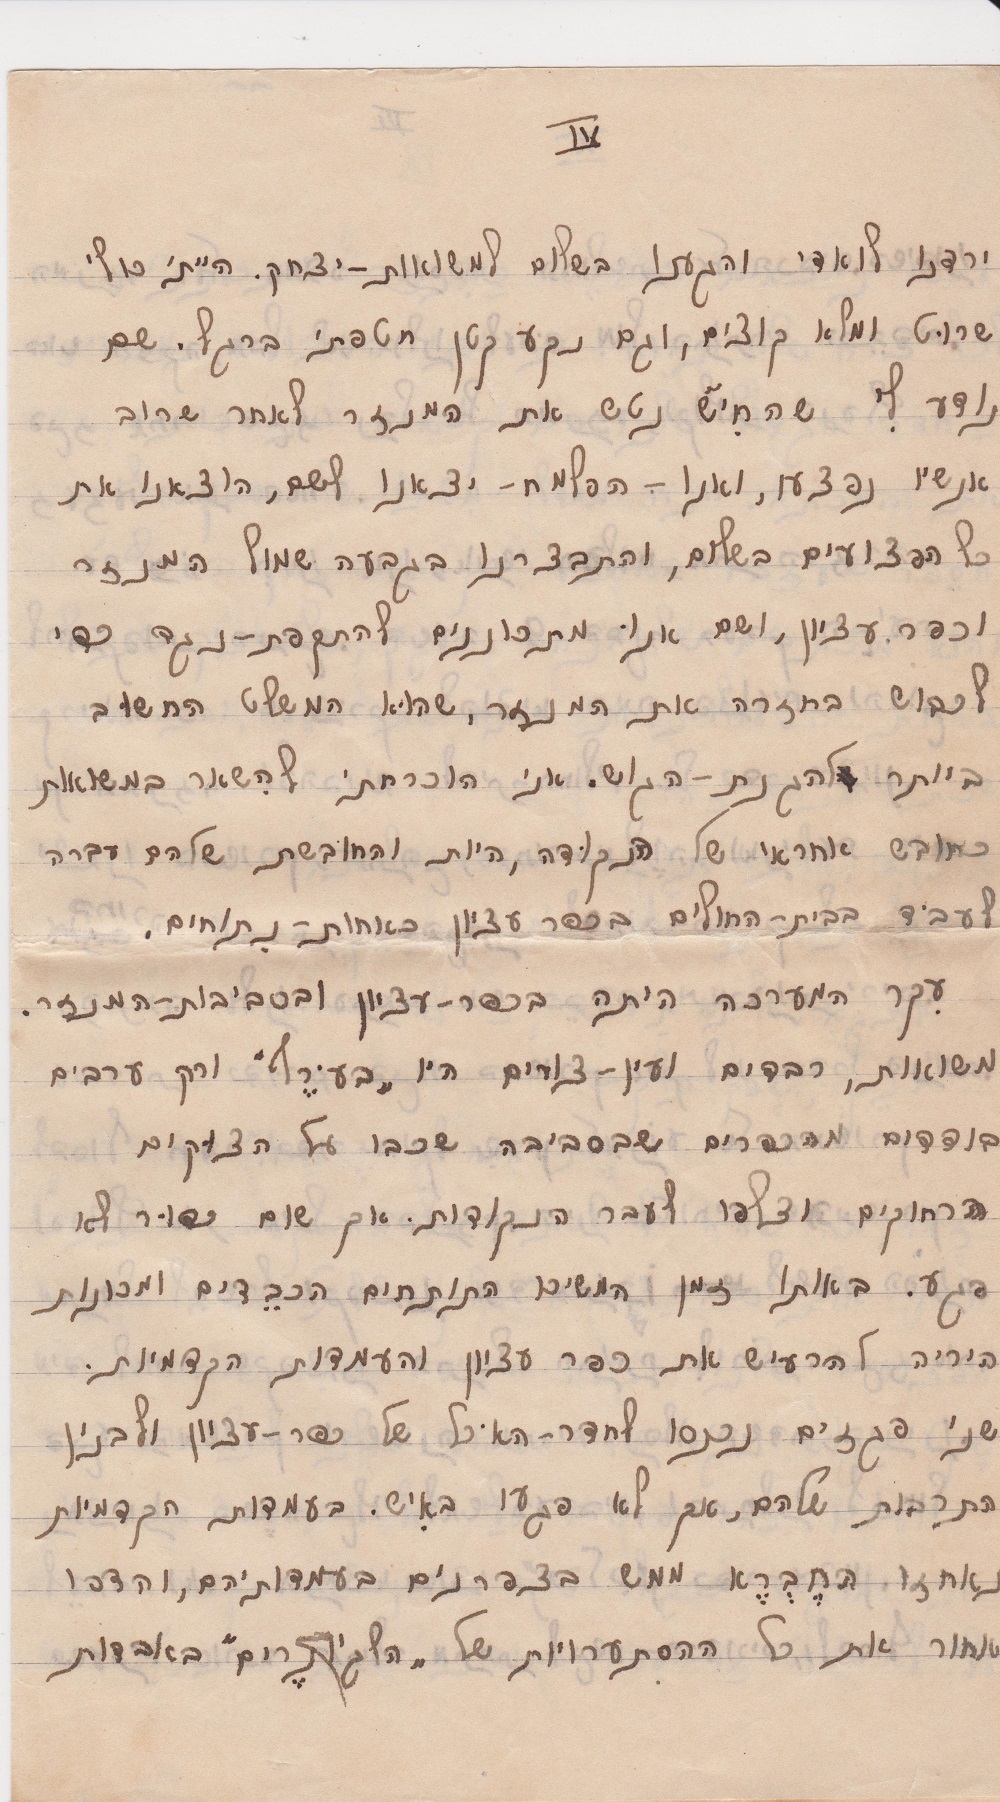 IV
ירדנו לואדי והגענו בשלום למשואות-יצחק. הייתי כולי
שרוט ומלא קוצים, וגם נקע קטן חטפתי ברגל. שם
נודע לִי שהחִי"ש נטש את המנזר לאחר שרוב
אנשיו נפצעו, ואנו - הפלמח - יצאנו לשם, הוצאנו את
כל הפצועים בשלום, והתבצרנו בגבעה שמול המנזר
וכפר עציון, ושם אנו מתכוננים להתקפת-נגד כדי
לכבוש בחזרה את המנזר, שהוא המשלט החשוב
ביותר להגנת-הגוש. אני הוכרחתי להִשאר במשואות
כחובש אחראי של הנקודה, היות והחובשת שלהם עברה
לעבוֹד בבית-החולים בכפר עציון כאחות-נִתוחים.
עִקר המערכה היתה בכפר-עציון ובסביבות-המנזר.
משואות, רבדים ועין-צורים היו "בעיֶרֶף" ורק ערבים
בודדים מהכפרים שבסביבה שכבו על הצוקים
הרחוקים וצלפו לעבר הנקודות. אך שום כדור לא
פגע. באותו זמן המשיכו התותחים הכבֵדים ומכונות
היריה להרעיש את כפר עציון והעמדות הקדמיות.
שני פגזים נכנסו לחדר-האֹכל של כפר-עציון ולבנין
התרבות שלהם, אך לא פגעו באִיש. בעמדות הקדמיות
נאחזו החֶבְרֶא ממש בצפרנים בעמדותיהם, והדפו
אחור את כל ההסתערויות של "הלגיונֶרים" באבדות